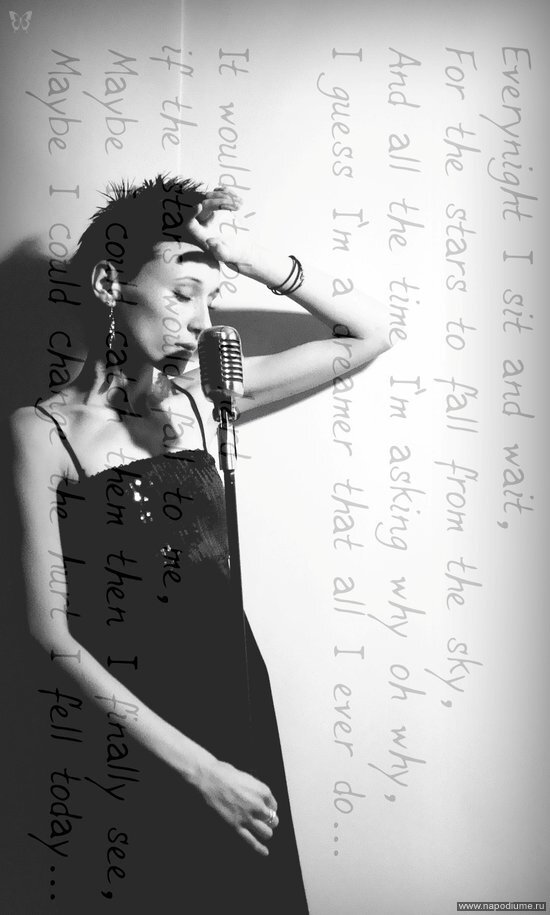 Everynight I sit and wait,
For the stars to fall from the sky,
And all the time I'm asking why oh why,
I guess I'm a dreamer that all I ever do...
It wouldn't be
if the stars would fall to me,
Maybe I could catch them then I finally see,
Maybe I could change the hurt I fell today...
www.napodiume.ru